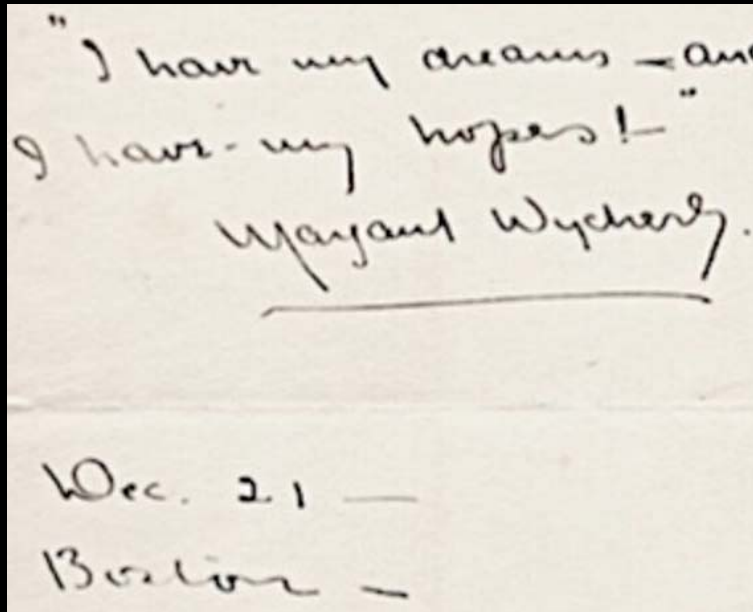 "I have my dreams – and
I have my hopes! –"
Margaret Wycherly.
Dec. 21 —
Boston –